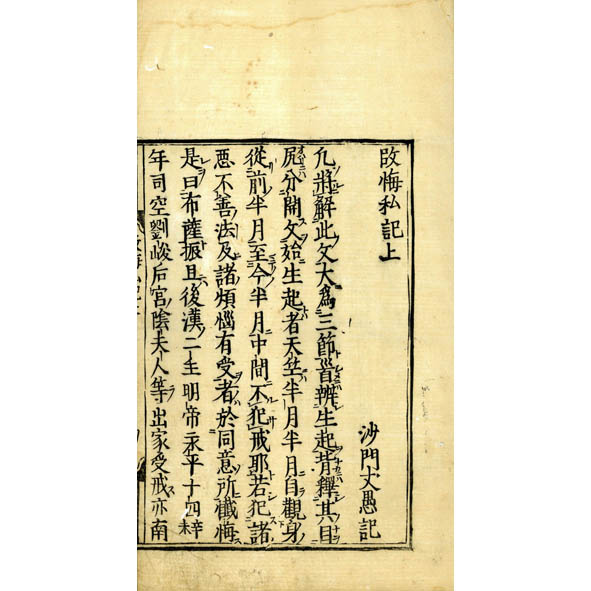 改悔私記上
沙門丈愚記
凢將解此文大爲三節首辨生起背釋其目
尻分開文始生起者天竺半月半月自觀身
從前半月至今半月中間不犯戒耶若犯諸
惡不善法及諸煩惱有受者於同意所懺悔
是曰布薩振旦後漢二主明帝永平十四辛未
年司空劉峻后宮陰夫人等出家受戒亦南